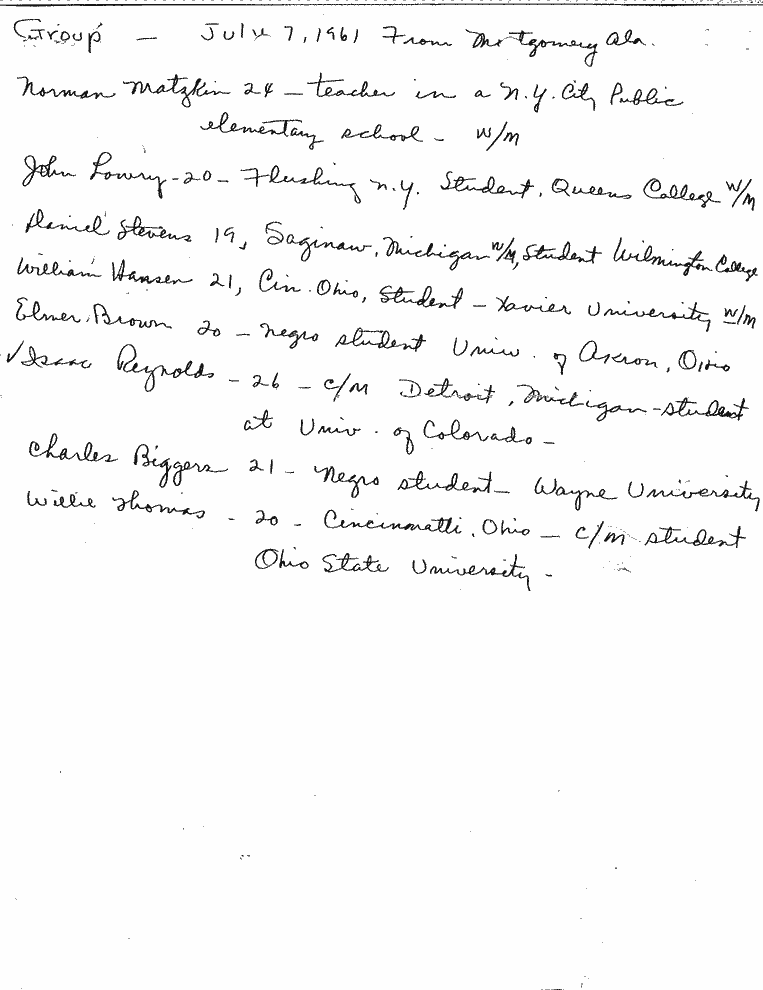 Group - July 7, 1961 From Montgomery Ala.
Norman Matzkin 24 - teacher in a N.Y. City Public
elementary school - W/M
John Lowry - 20 - Flushing N.Y. Student, Queens College W/M
Daniel Stevens 19, Saginaw, Michigan W/M, Student Wilmington College
William Hansen 21, Cin. Ohio, Student - Xavier University W/M
Elmer Brown 20 - negro student Univ. of Akron, Ohio
✓ Isaac Reynolds - 26 - C/M Detroit, Michigan - student
at Univ. of Colorado -
Charles Biggers 21 - Negro student - Wayne University
Willie Thomas - 20 - Cincinnatti, Ohio - C/M student
Ohio State University -